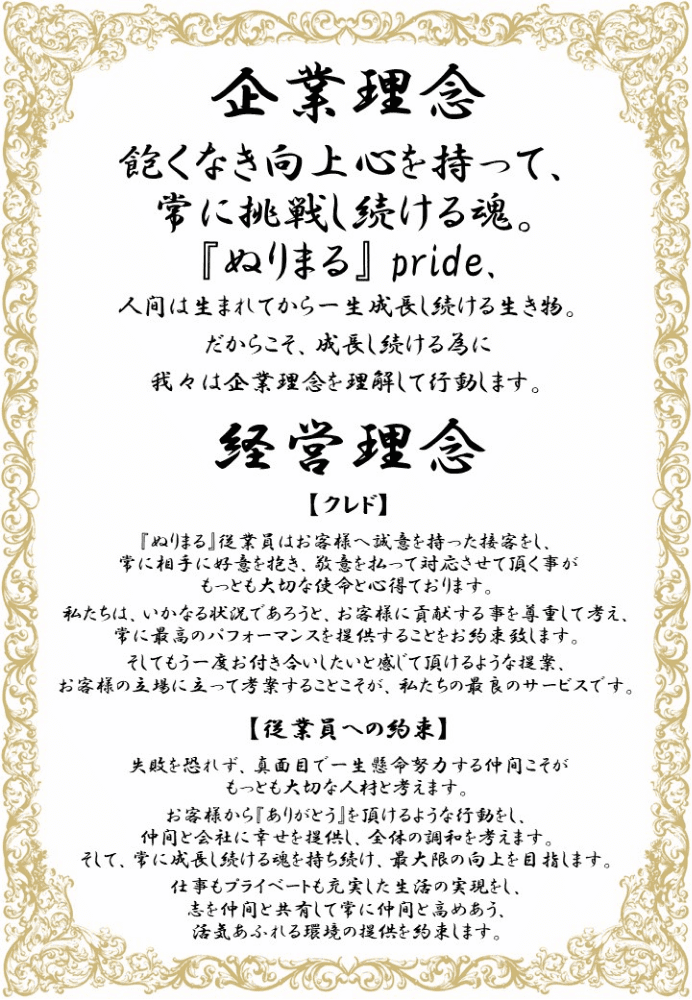 企業理念
飽くなき向上心を持って、
常に挑戦し続ける魂。
『ぬりまる』pride、
人间は生まれてから一生成長し続ける生き物。
だからこそ、成長し続ける為に
我々は企業理念を理解して行動します。
経営理念
【クレド】
『ぬりまる』従業員はお客様へ誠意を持った接客をし、
常に相手に好意を抱き、敬意を払って対応させて頂く事が
もっとも大切な使命と心得ております。
私たちは、いかなる状況であろうと、お客様に貢献する事を尊重して考え、
常に最高のパフォーマンスを提供することをお約束致します。
そしてもう一度お付き合いしたいと感じて頂けるような提案、
お客様の立場に立って考案することこそが、私たちの最良のサービスです。
【従業員への約束】
失敗を恐れず、真面目で一生懸命努力する仲间こそが
もっとも大切な人材と考えます。
お客様から『ありがとう』を頂けるような行動をし、
仲间と会社に幸せを提供し、全体の調和を考えます。
そして、常に成長し続ける魂を持ち続け、最大限の向上を目指します。
仕事もプライベートも充実した生活の実現をし、
志を仲间と共有して常に仲间と高めあう、
活気あふれる環境の提供を約束します。